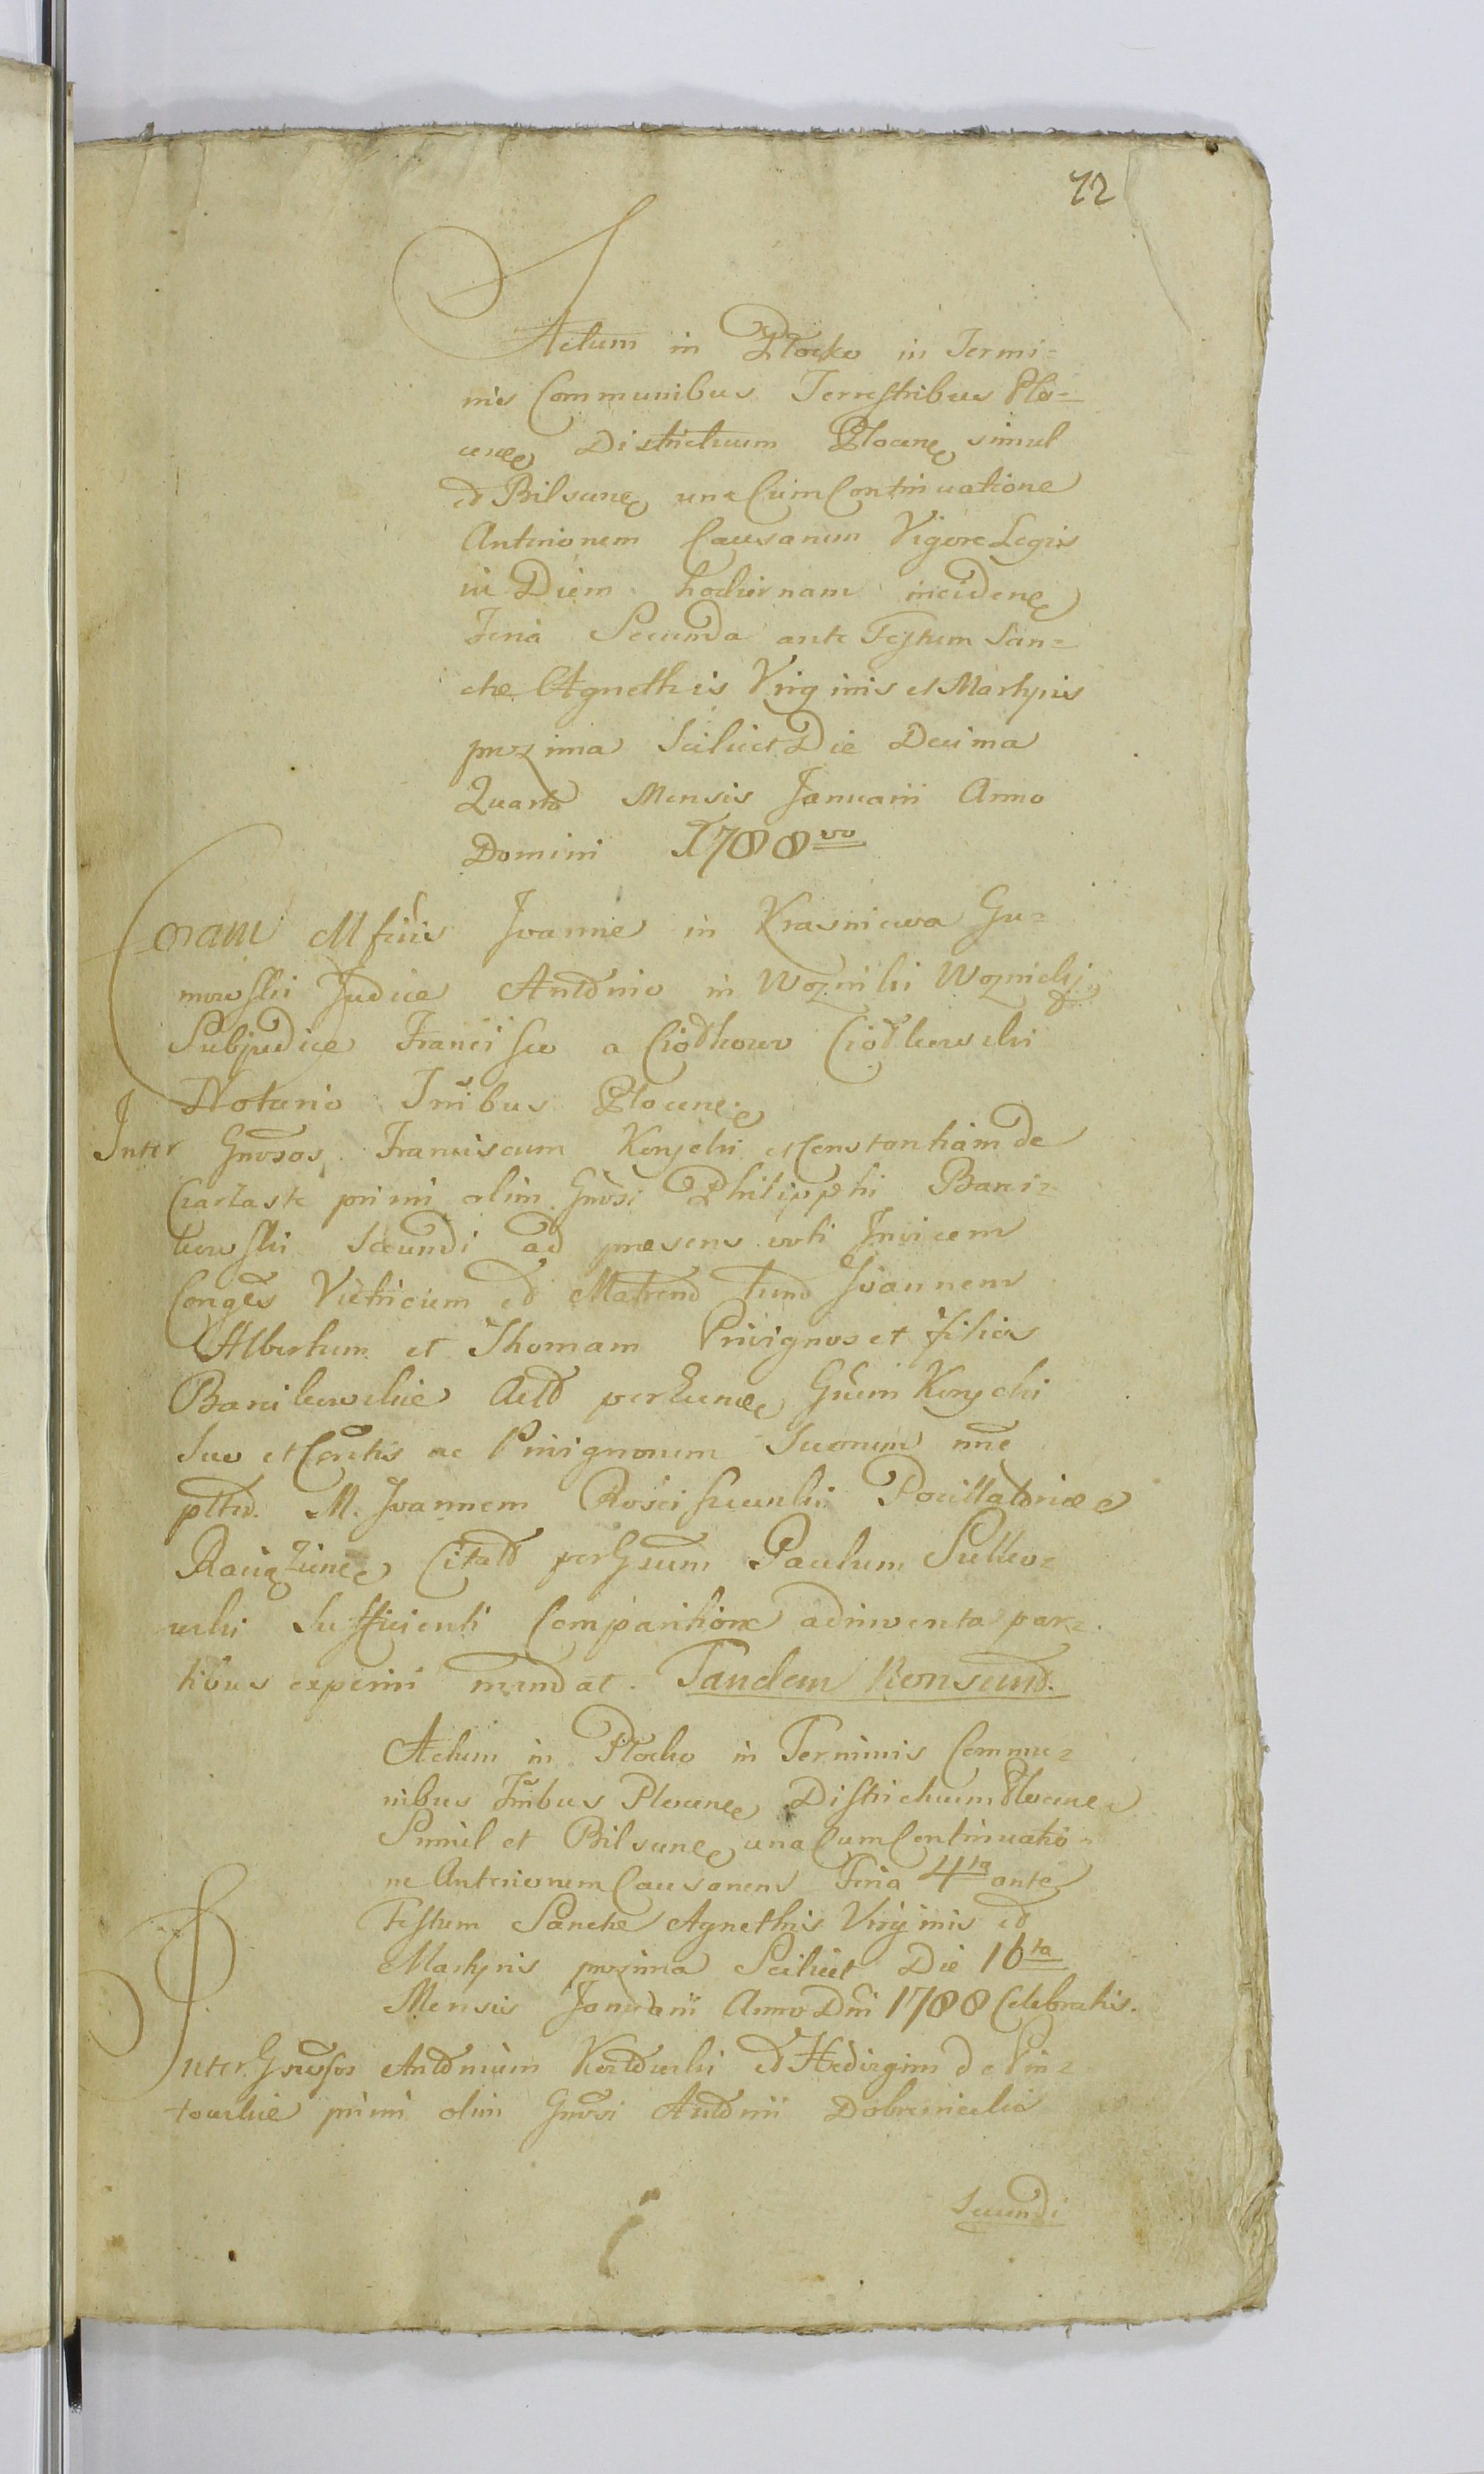 72
Actum in Płocko in Termi=
nis Communibus Terrestribus Plo=
cen Districtuum Plocen simul
et Bilscen una Cum Continuatione
Anteriorum Causarum Vigore Legis
in Diem hodiernam inciden
Feria Secunda ante Festum San=
ctae Agnethis Virginis et Martyris
proxima Scilicet Die Decima
Quarta Mensis Januarii Anno
Domini 1788vo
Coram Mfcis Joanne in Krasniewa Gu=
mowski Judice Antonio in Wozniki Woznicki
Subjudice Francisco a Ciołkowo Ciołkowski
Notario Trribus Plocen
Inter Gnosos Franciscum et Constantiam de
primi olim Gnosi Philipphi Bani=
kowski Secundi ad praesens voti Invicem
Conges Vitricum et Matrem tum Joannem
Albertum et Thomam Privignos et filios
Banikowskie Act per Gnum
Suo et Contis ac Privignorum Suorum nne
M. Joannem Rosciszewski Pocillatorem
Raciązinen Citat per Gnum Paulum Sulko=
wski Sufficienti Comparitione adinventa par=
tibus experiri mandat. Tandem
Actum in Płocko in Terminis Commu=
nibus Trribus Plocen Districtuum Plocen
Simul et Bilscen una Cum Continuatio=
ne Anteriorum Causarum Feria 4ta ante
Festum Sanctae Agnethis Virginis et
Martyris proxima Scilicet Die 16ta
Mensis Januarii Anno Dni 1788 Celebratis.
Inter Gnosos Antonium et Hedvigim de Pin=
towskie primi olim Gnosi Antonii
Secundi